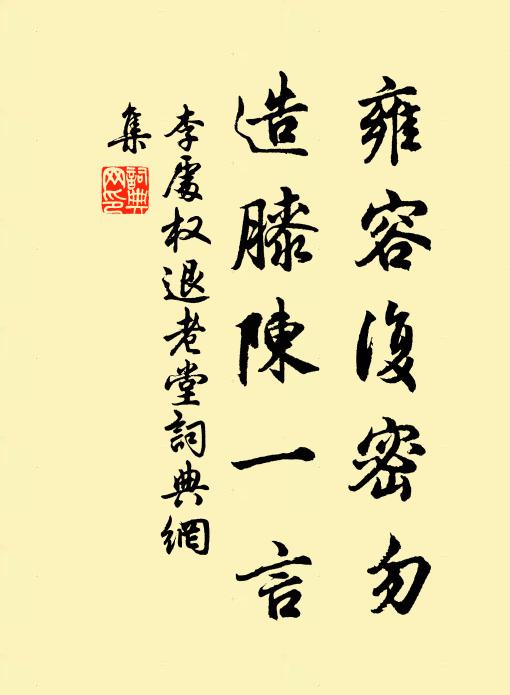 雍容復密勿
造膝陳一言
李處权退老堂詞典網
集
詞典
网印